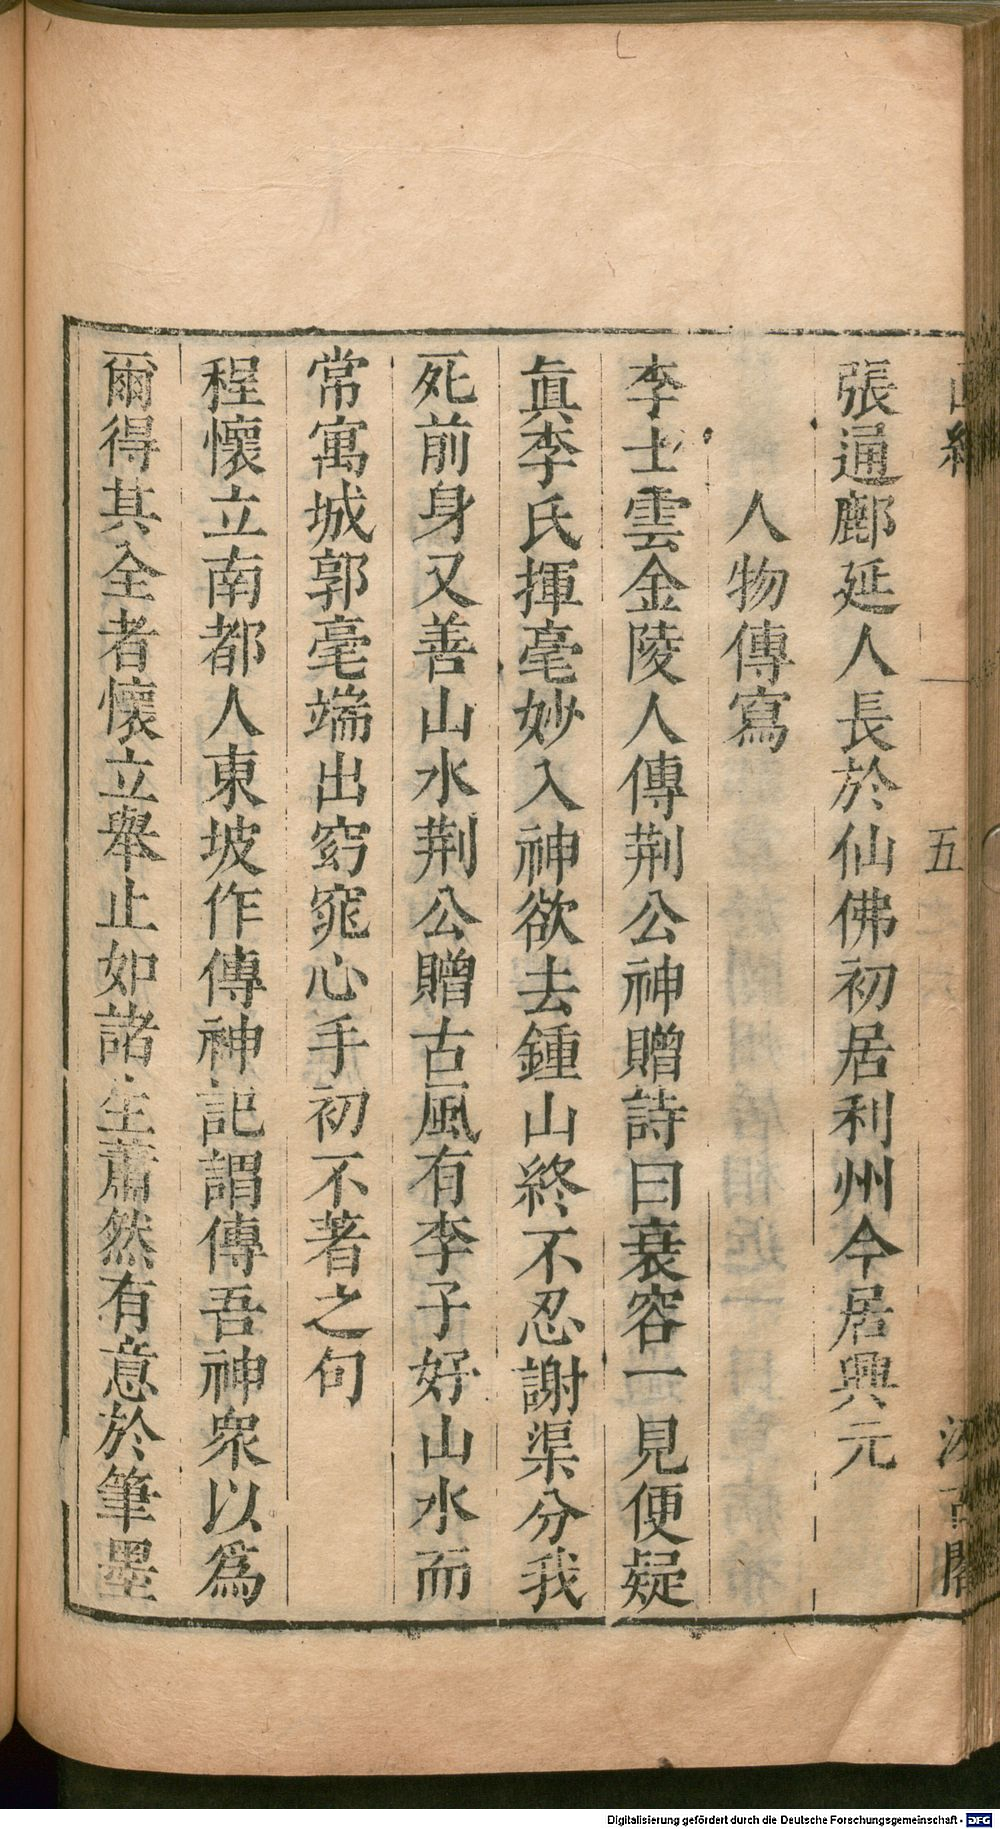 五
張通鄜延人長於仙佛初居利州今居興元
人物傳寫
李士雲金陵人傳荆公神贈詩曰衰容一見便疑
眞李氏揮毫妙入神欲去鍾山終不忍謝渠分我
死前身又善山水荆公贈古風有李子好山水而
常寓城郭毫端出窈窕心手初不著之句
程懷立南都人東坡作傳神記謂傳吾神衆以爲
爾得其全者懷立舉止如諸生蕭然有意於筆墨
Digitalisierung gefördert durch die Deutsche Forschungsgemeinschaft - DFG